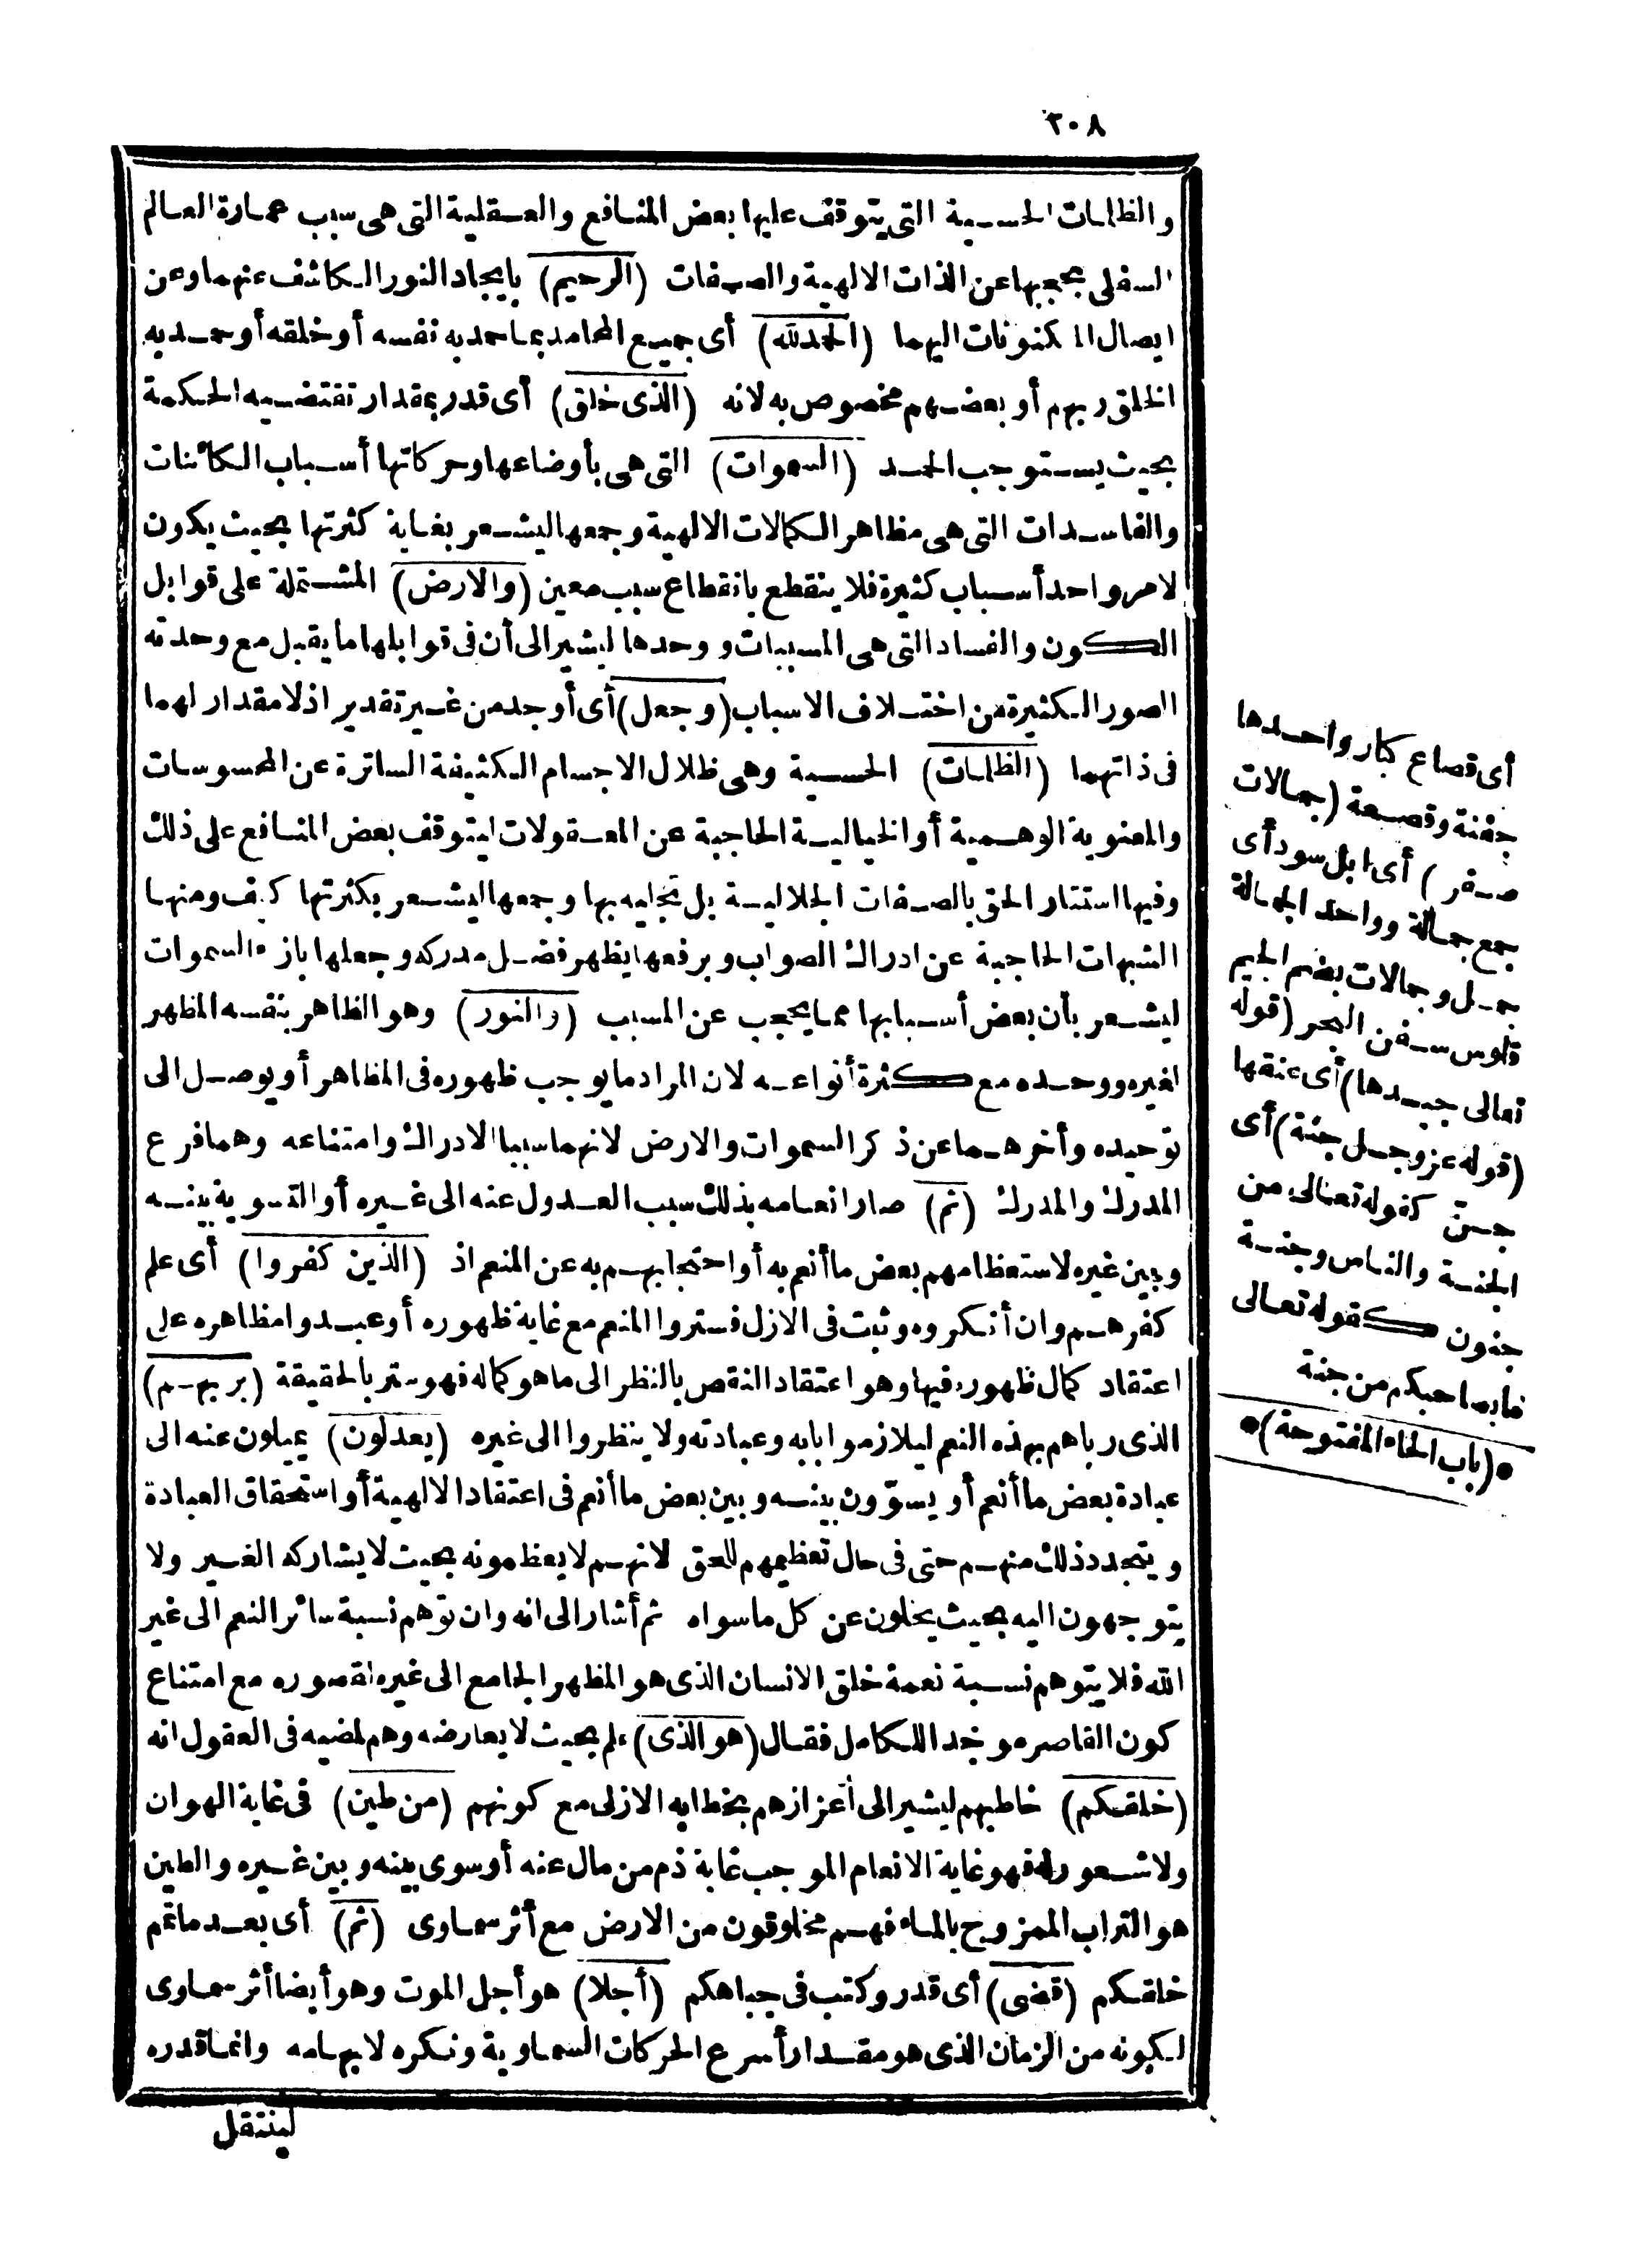 ٢٠٨
والظلمات الحسية التى يتوقف عليها بعض المنافع والعقلية التى هى سبب عمارة العالم
السفلى بحجبها عن الذات الالهية والصفات (الرحيم) بايجاد النور الكاشف عنهما وعن
ايصال المكنونات اليهما (الحمد لله) أى جميع المحامد بما حمد به نفسه أو خلقه أو حمد به
الخلق ربهم أو بعضهم مخصوص به لانه (الذى خلق) أى قدر بمقدار تقتضيه الحكمة
بحيث يستوجب الحمد (السموات) التى هى بأوضاعها وحركاتها أسباب الكائنات
والفاسدات التى هى مظاهر الكمالات الالهية وجمعها ليشعر بغاية كثرتها بحيث يكون
لامر واحد أسباب كثيرة فلا ينقطع بانقطاع سبب معين (والارض) المشتملة على قوابل
الكون والفساد التى هى المسببات ووحدها ليشير الى أن فى قوابلها ما يقبل مع وحدته
الصور الكثيرة من اختلاف الاسباب (وجعل) أى أوجد من غير تقدير اذ لا مقدار لهما
فى ذاتهما (الظلمات) الحسية وهى ظلال الاجسام الكثيفة الساترة عن المحسوسات
والمعنوية الوهمية أو الخيالية الحاجبة عن المعقولات ليتوقف بعض المنافع على ذلك
وفيها استتار الحق بالصفات الجلالية بل تجليه بها وجمعها ليشعر بكثرتها كيف ومنها
الشبهات الحاجبة عن ادراك الصواب وبرفعها يظهر فضل مدركه وجعلها بازاء السموات
ليشعر بأن بعض أسبابها مما يحجب عن المسبب (والنور) وهو الظاهر بنفسه المظهر
لغيره ووحده مع كثرة أنواعه لان المراد ما يوجب ظهوره فى المظاهر أو يوصل الى
توحيده وأخرهما عن ذكر السموات والارض لانهما سببا الادراك وامتناعه وهما فرع
المدرك والمدرك (ثم) صار انعامه بذلك سبب العدول عنه الى غيره أو التسوية بينه
وبين غيره لاستعظامهم بعض ما أنعم به أو احتجابهم به عن المنعم اذ (الذين كفروا) أى علم
كفرهم وان أنكروه وثبت فى الازل فستروا المنعم مع غاية ظهوره أو عبدوا مظاهره على
اعتقاد كمال ظهوره فيها وهو اعتقاد النقص بالنظر الى ما هو كماله فهو ستر بالحقيقة (بربهم)
الذى رباهم بهذه النعم ليلازموا بابه وعبادته ولا ينظروا الى غيره (يعدلون) يميلون عنه الى
عبادة بعض ما أنعم أو يسوّون بينه وبين بعض ما أنعم فى اعتقاد الالهية أو استحقاق العبادة
ويتجدد ذلك منهم حتى فى حال تعظيمهم للحق لانهم لا يعظمونه بحيث لا يشاركه الغير ولا
يتوجهون اليه بحيث يخلون عن كل ما سواه ثم أشار الى انه وان توهم نسبة سائر النعم الى غير
الله فلا يتوهم نسبة نعمة خلق الانسان الذى هو المظهر الجامع الى غيره لقصوره مع امتناع
كون القاصر موجدا للكامل فقال (هو الذى) علم بحيث لا يعارضه وهم لمضيه فى العقول انه
(خلقكم) خاطبهم ليشير الى أعزازهم بخطابه الازلى مع كونهم (من طين) فى غاية الهوان
ولا شعور له فهو غاية الانعام الموجب غاية ذم من مال عنه أو سوى بينه وبين غيره والطين
هو التراب الممزوج بالماء فهم مخلوقون من الارض مع أثر سماوى (ثم) أى بعد ما تم
خلقكم (قضى) أى قدر وكتب فى جباهكم (أجلا) هو أجل الموت وهو أيضا أثر سماوى
لكونه من الزمان الذى هو مقدار أسرع الحركات السماوية ونكره لابهامه وانما قدره
لينتقل
أى قصاع كبار واحدها
جفنة وقصعة (جمالات
صفر) أى ابل سود أى
جمع جمالة وواحد الجمالة
جمل وجمالات بضم الجيم
قلوس سفن البحر (قوله
تعالى جيدها) أى عنقها
(قوله عز وجل جنة) أى
جنّ كقوله تعالى من
الجنة والناس وجنة
جنون كقوله تعالى
ما بصاحبكم من جنة
•(باب الحاء المفتوحة)•